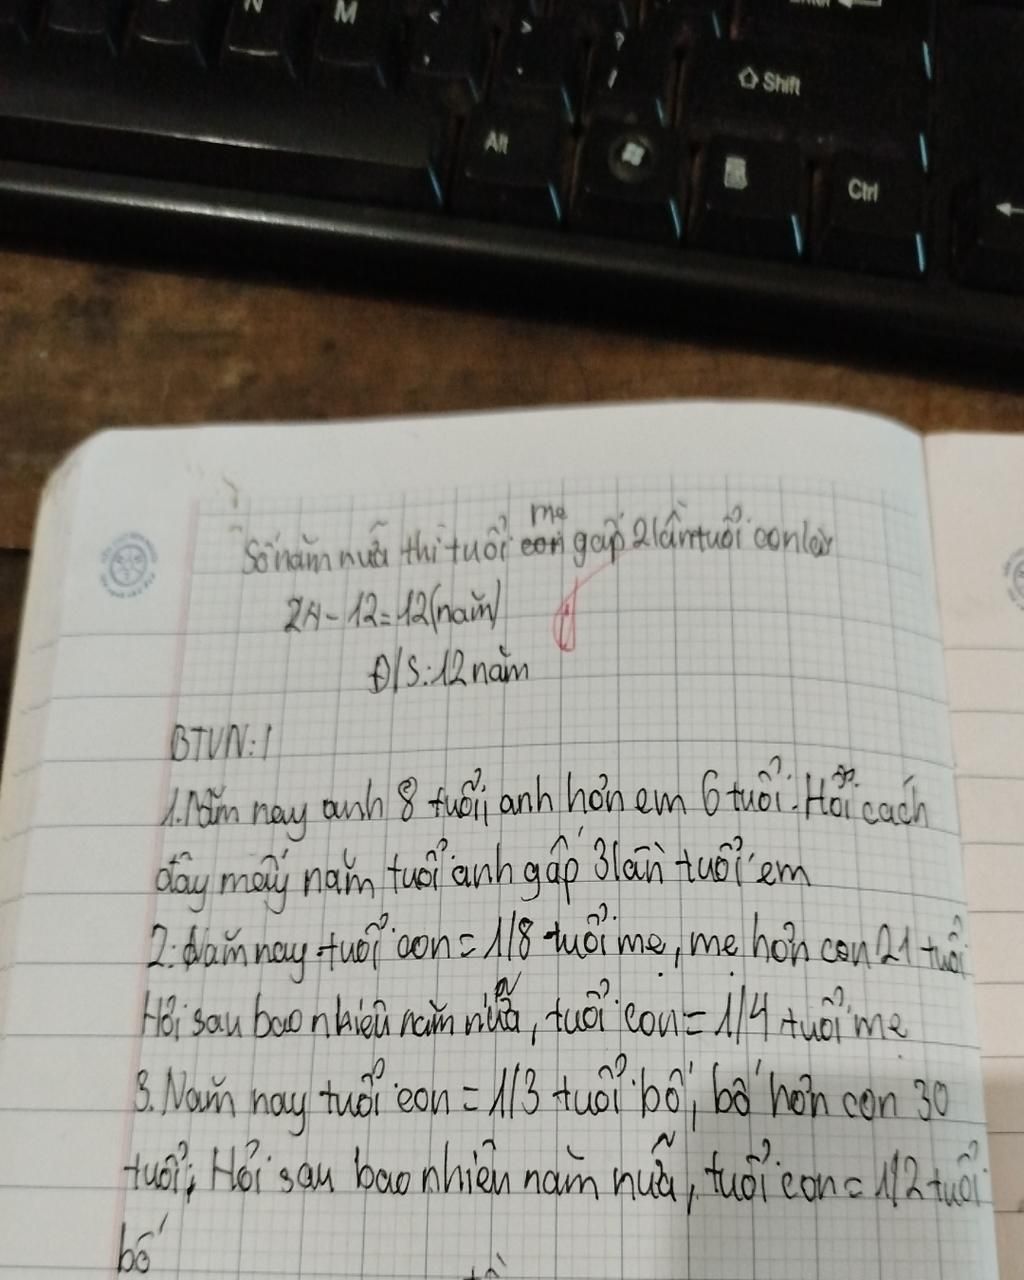 N M < > ?
, . /
Shift
Alt
Ctrl
mẹ
Số năm nữa thì tuổi con gấp 2 lần tuổi con là
24 - 12 = 12 (năm)
Đ/S: 12 năm
BTVN: 1
1. Năm nay anh 8 tuổi, anh hơn em 6 tuổi. Hỏi cách
đây mấy năm tuổi anh gấp 3 lần tuổi em
2. Năm nay tuổi con = 1/8 tuổi mẹ, mẹ hơn con 21 tuổi
Hỏi sau bao nhiêu năm nữa, tuổi con = 1/4 tuổi mẹ
3. Năm nay tuổi con = 1/3 tuổi bố, bố hơn con 30
tuổi; Hỏi sau bao nhiên năm nữa, tuổi con = 1/2 tuổi
bố